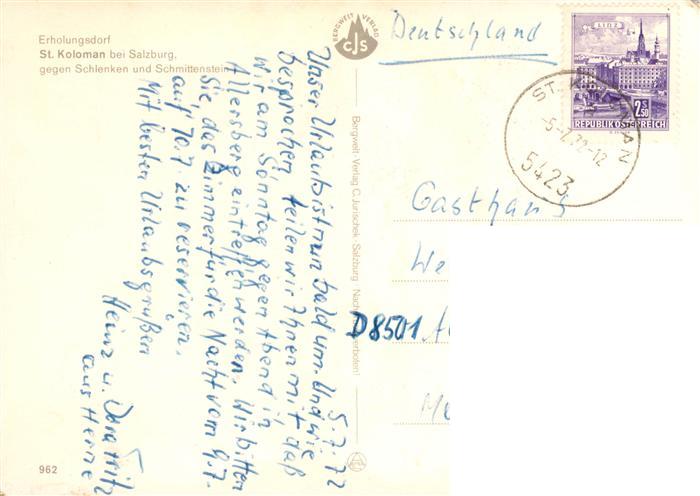 Erholungsdorf
St. Koloman bei Salzburg,
gegen Schlenken und Schmittenstein
BERGWELT VERLAG
CJS
Deutschland
LINZ
2.50 S
REPUBLIK ÖSTERREICH
ST. KOLOMAN
-5.-7.72-12
5423
5.7.72
Unser Urlaub ist nun bald um. Und wie
besprochen, teilen wir Ihnen mit daß
wir am Sonntag gegen Abend in
Allersberg eintreffen werden. Wir bitten
Sie, das Zimmer für die Nacht vom 9.7.
auf 10.7. zu reservieren.
Mit besten Urlaubsgrüßen
Heinz u. Dora Fritz
aus Herne
Bergwelt-Verlag C. Jurischek, Salzburg
Gasthaus
We
D8501
Me
962